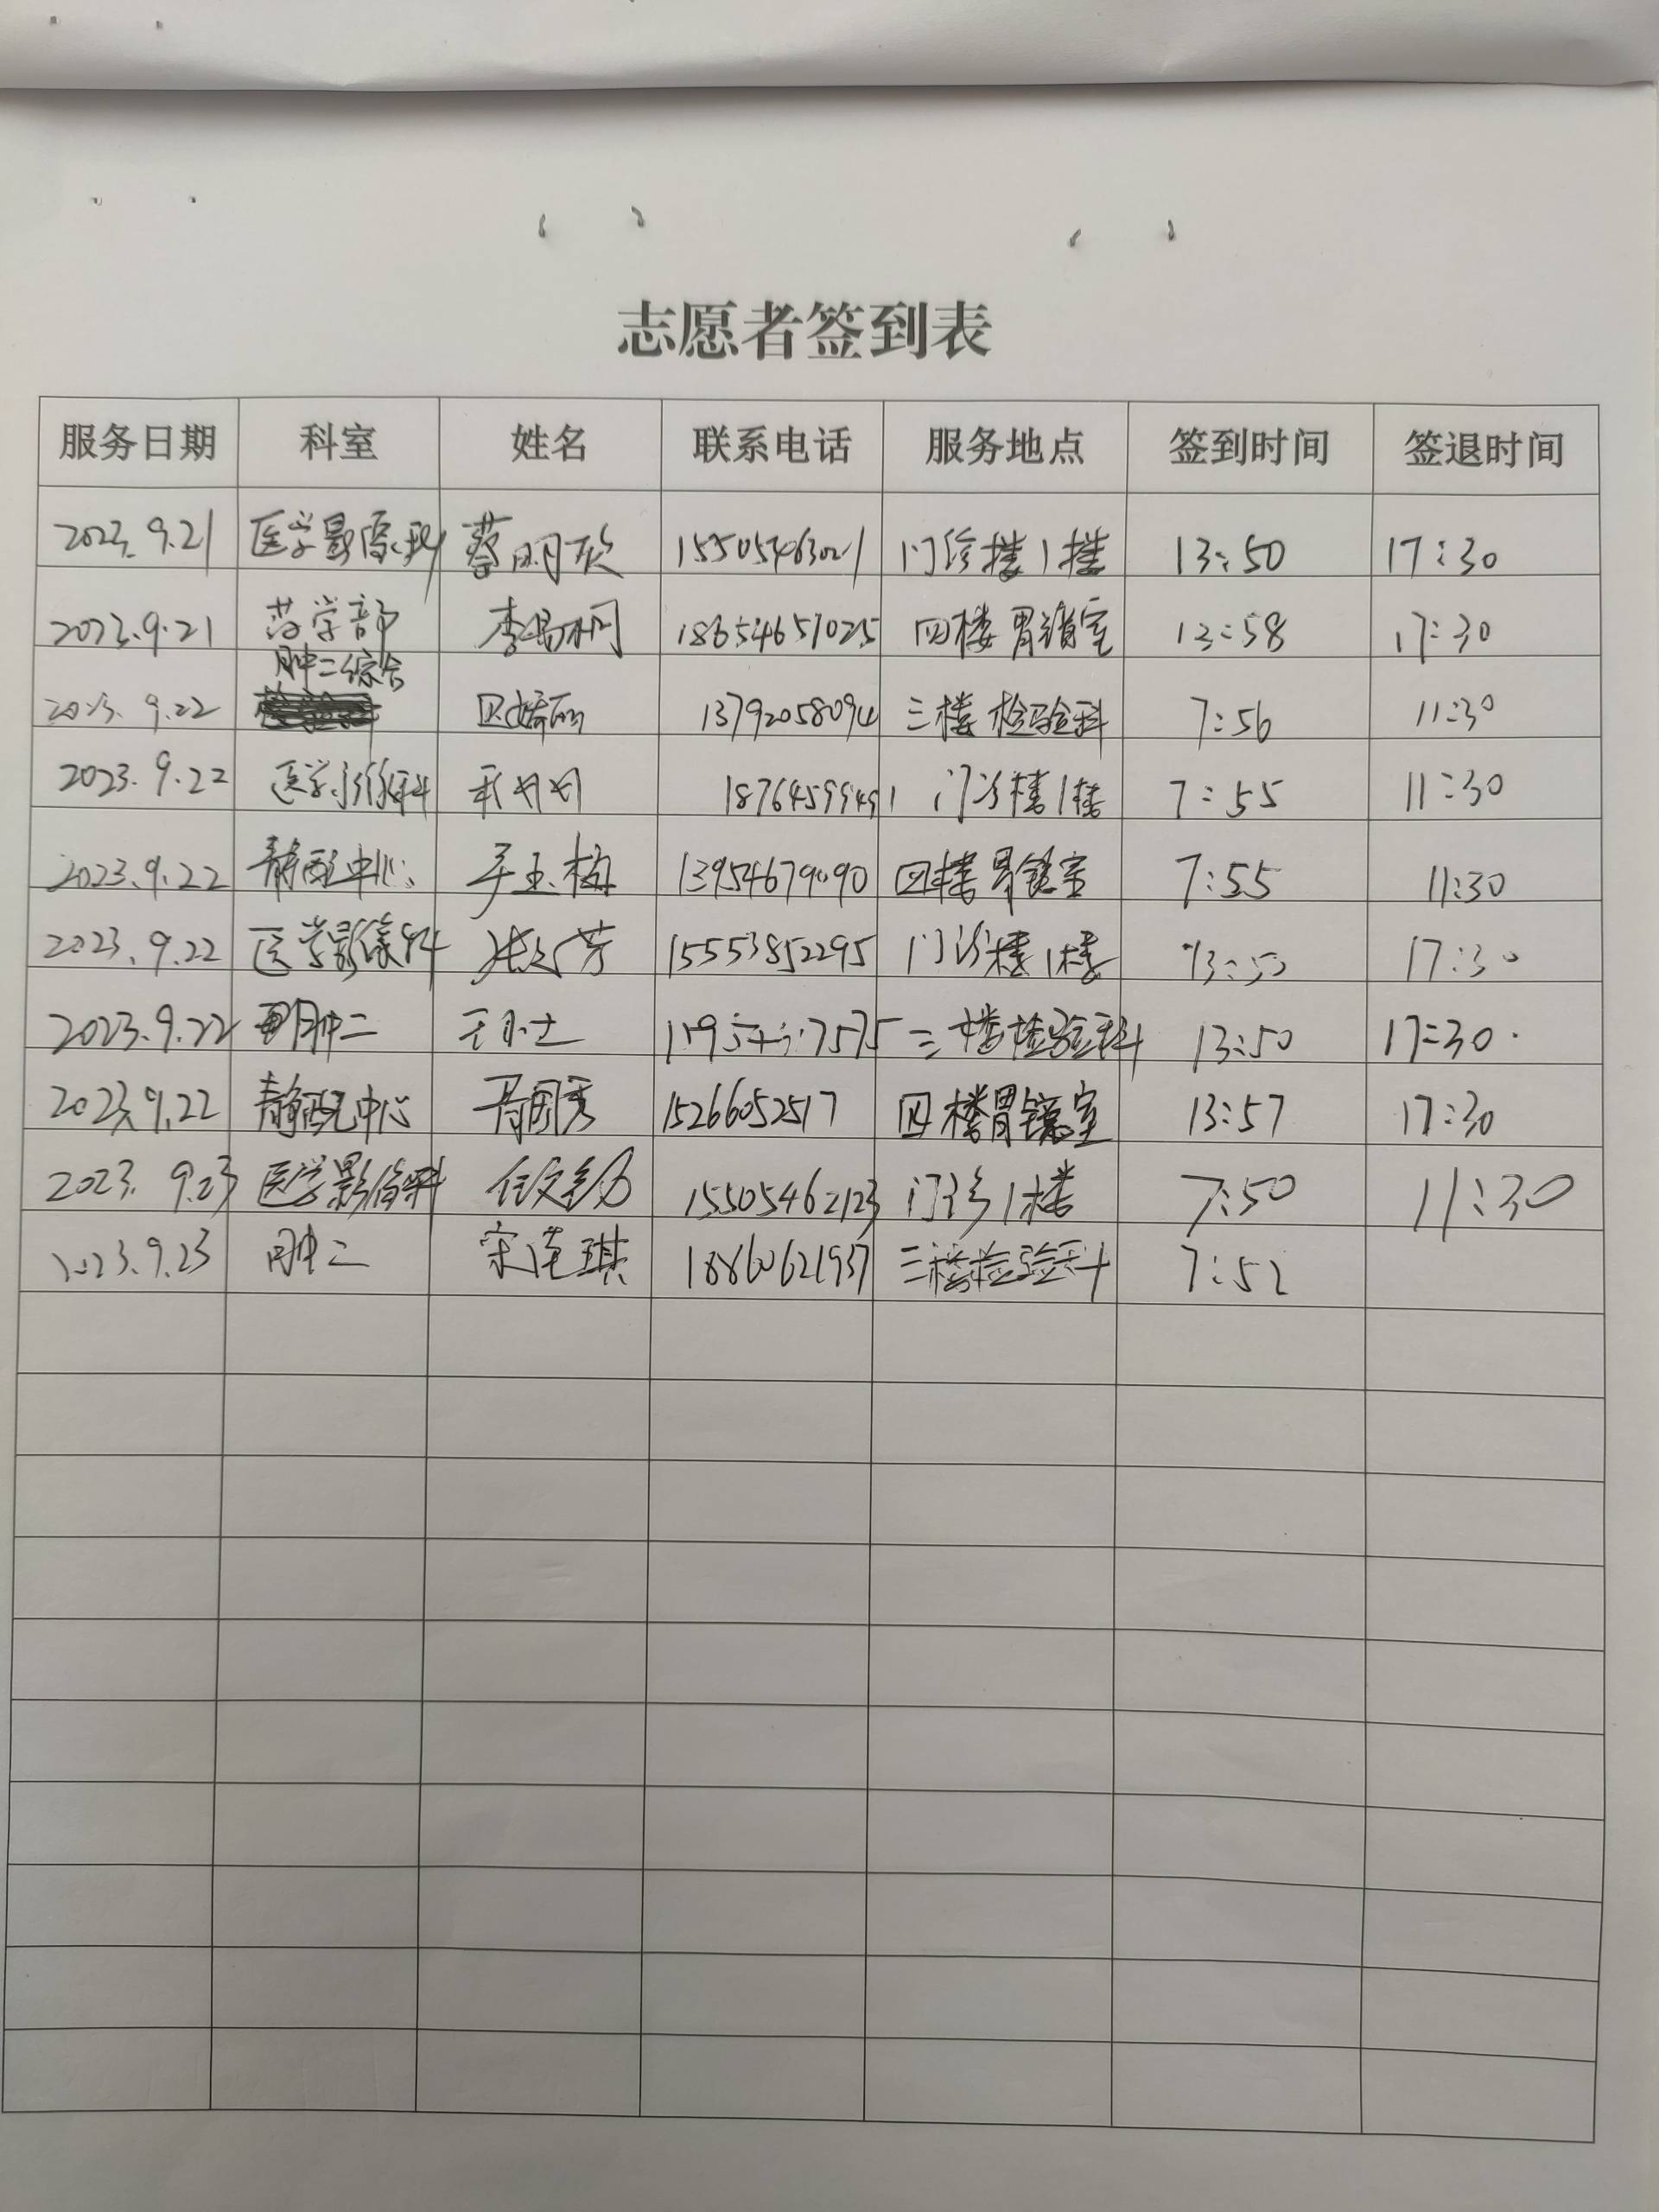 志愿者签到表
服务日期 科室 姓名 联系电话 服务地点 签到时间 签退时间
2023.9.21 医学影像科 蔡明欣 15505463021 门诊楼1楼 13:50 17:30
2023.9.21 药学部 18654657025 四楼胃镜室 13:58 17:30
肿二综合
2023.9.22 13792058094 三楼检验科 7:56 11:30
2023.9.22 医学影像科 18764599491 门诊楼1楼 7:55 11:30
2023.9.22 静配中心 13954679090 四楼胃镜室 7:55 11:30
2023.9.22 医学影像科 15553852295 门诊楼1楼 13:50 17:30
2023.9.22 肿二 三楼检验科 13:50 17:30
2023.9.22 静配中心 15266052517 四楼胃镜室 13:57 17:30
2023.9.23 医学影像科 15505462123 门诊1楼 7:50 11:30
2023.9.23 肿二 宋莲琪 18860621937 三楼检验科 7:52